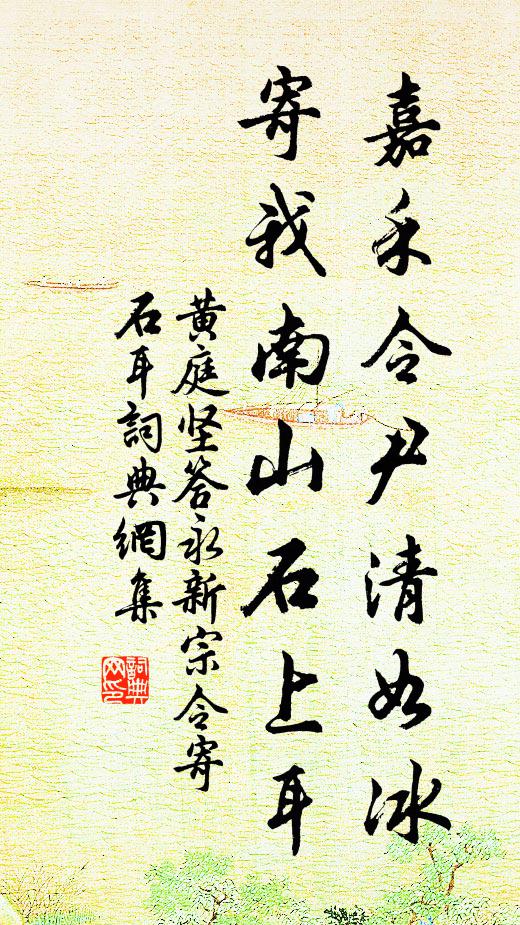 嘉禾令尹清如冰
寄我南山石上耳
黄庭坚答永新宗令寄
石耳詞典網集
詞典
网印